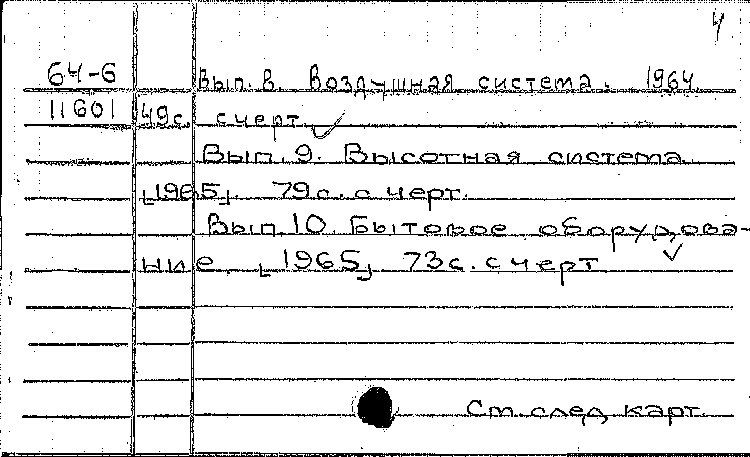 4
64-6 Вып. 8. Воздушная система. 1964
11601 49с. с черт.
Вып. 9. Высотная система
[1965]. 79с. с черт.
Вып. 10. Бытовое оборудова-
ние [1965] 73с. с черт
См. след. карт.